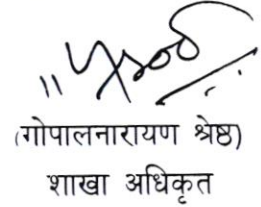 (गोपालनारायण श्रेष्ठ)
शाखा अधिकृत